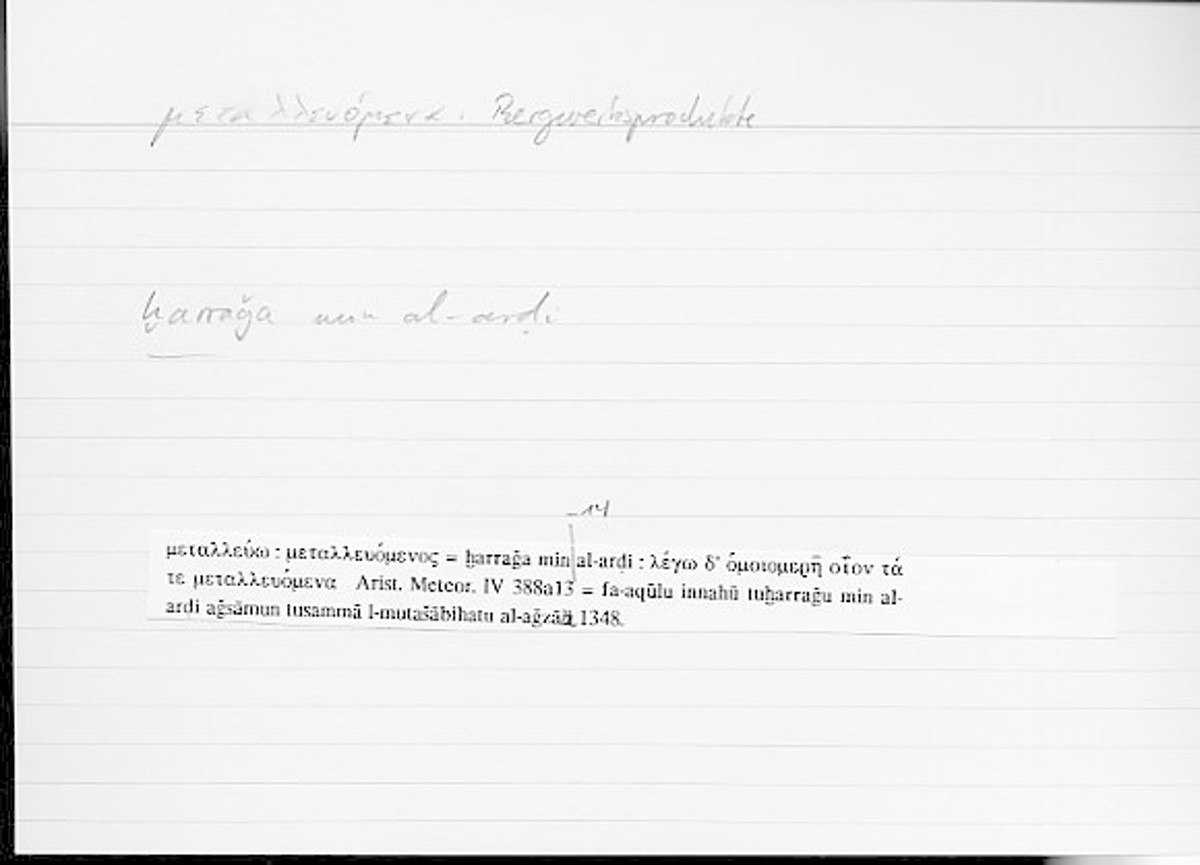 μεταλλευόμενα. Bergwerksprodukte
ḫarraǧa min al-arḍi
-14
μεταλλεύω : μεταλλευόμενος = ḫarraǧa min al-arḍi : λέγω δ' ὁμοιομερῆ οἷον τά
τε μεταλλευόμενα Arist. Meteor. IV 388a13 = fa-aqūlu innahū tuḫarraǧu min al-
arḍi aǧsāmun tusammā l-mutašābihatu al-aǧzāʾi 1348.